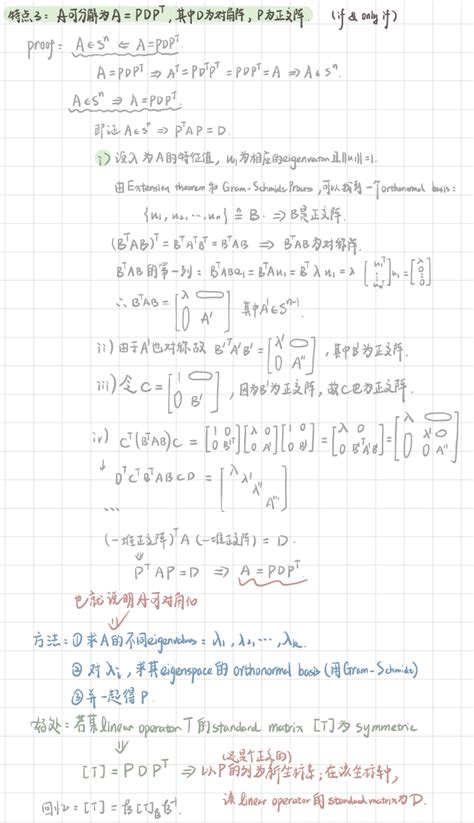 特点3：A可分解为A=PDPᵀ，其中D为对角阵，P为正交阵. (if & only if)
proof: A∈Sⁿ ⇐ A=PDPᵀ.
A=PDPᵀ ⇒ Aᵀ=PDᵀPᵀ=PDPᵀ=A ⇒ A∈Sⁿ.
A∈Sⁿ ⇒ A=PDPᵀ.
即证 A∈Sⁿ ⇒ PᵀAP=D.
i) 设λ为A的特征值，u₁为相应的eigenvector且||u₁||=1.
由Extension theorem和Gram-Schmidt Process，可以找到一个orthonormal basis:
{u₁, u₂, ⋯, uₙ} ≜ B. ⇒ B是正交阵.
(BᵀAB)ᵀ=BᵀAᵀBᵀᵀ=BᵀAB ⇒ BᵀAB为对称阵.
BᵀAB的第一列：BᵀABe₁=BᵀAu₁=Bᵀλu₁=λ[u₁ᵀ ⋮ uₙᵀ]u₁=[λ 0 ⋮ 0]
∴ BᵀAB=[λ 0 0 A'] 其中A'∈Sⁿ⁻¹.
ii) 由于A'也对称故 B'ᵀA'B'=[λ' 0 0 A''], 其中B'为正交阵.
iii) 令C=[1 0 0 B'], 因为B'为正交阵，故C也为正交阵.
iv) Cᵀ(BᵀAB)C=[1 0 0 B'ᵀ][λ 0 0 A'][1 0 0 B']=[λ 0 0 B'ᵀA'B']=[λ 0 0 λ' 0 0 A'']
↓
DᵀCᵀBᵀABCD=[λ λ' λ'' A''']
⋯
(一堆正交阵)ᵀA(一堆正交阵)=D.
⇓
PᵀAP=D ⇒ A=PDPᵀ
也就说明A可对角化
方法：① 求A的不同eigenvalues：λ₁, λ₂, ⋯, λₖ.
② 对λᵢ，求其eigenspace的orthonormal basis (用Gram-Schmidt)
③ 并一起得P.
好处：若某linear operator T的standard matrix [T]为symmetric
⇓ (还是个正交的)
[T]=PDPᵀ ⇒ 以P的列为新坐标系；在该坐标系中，
该linear operator的standard matrix为D.
回忆：[T]=B[T]_B B⁻¹.